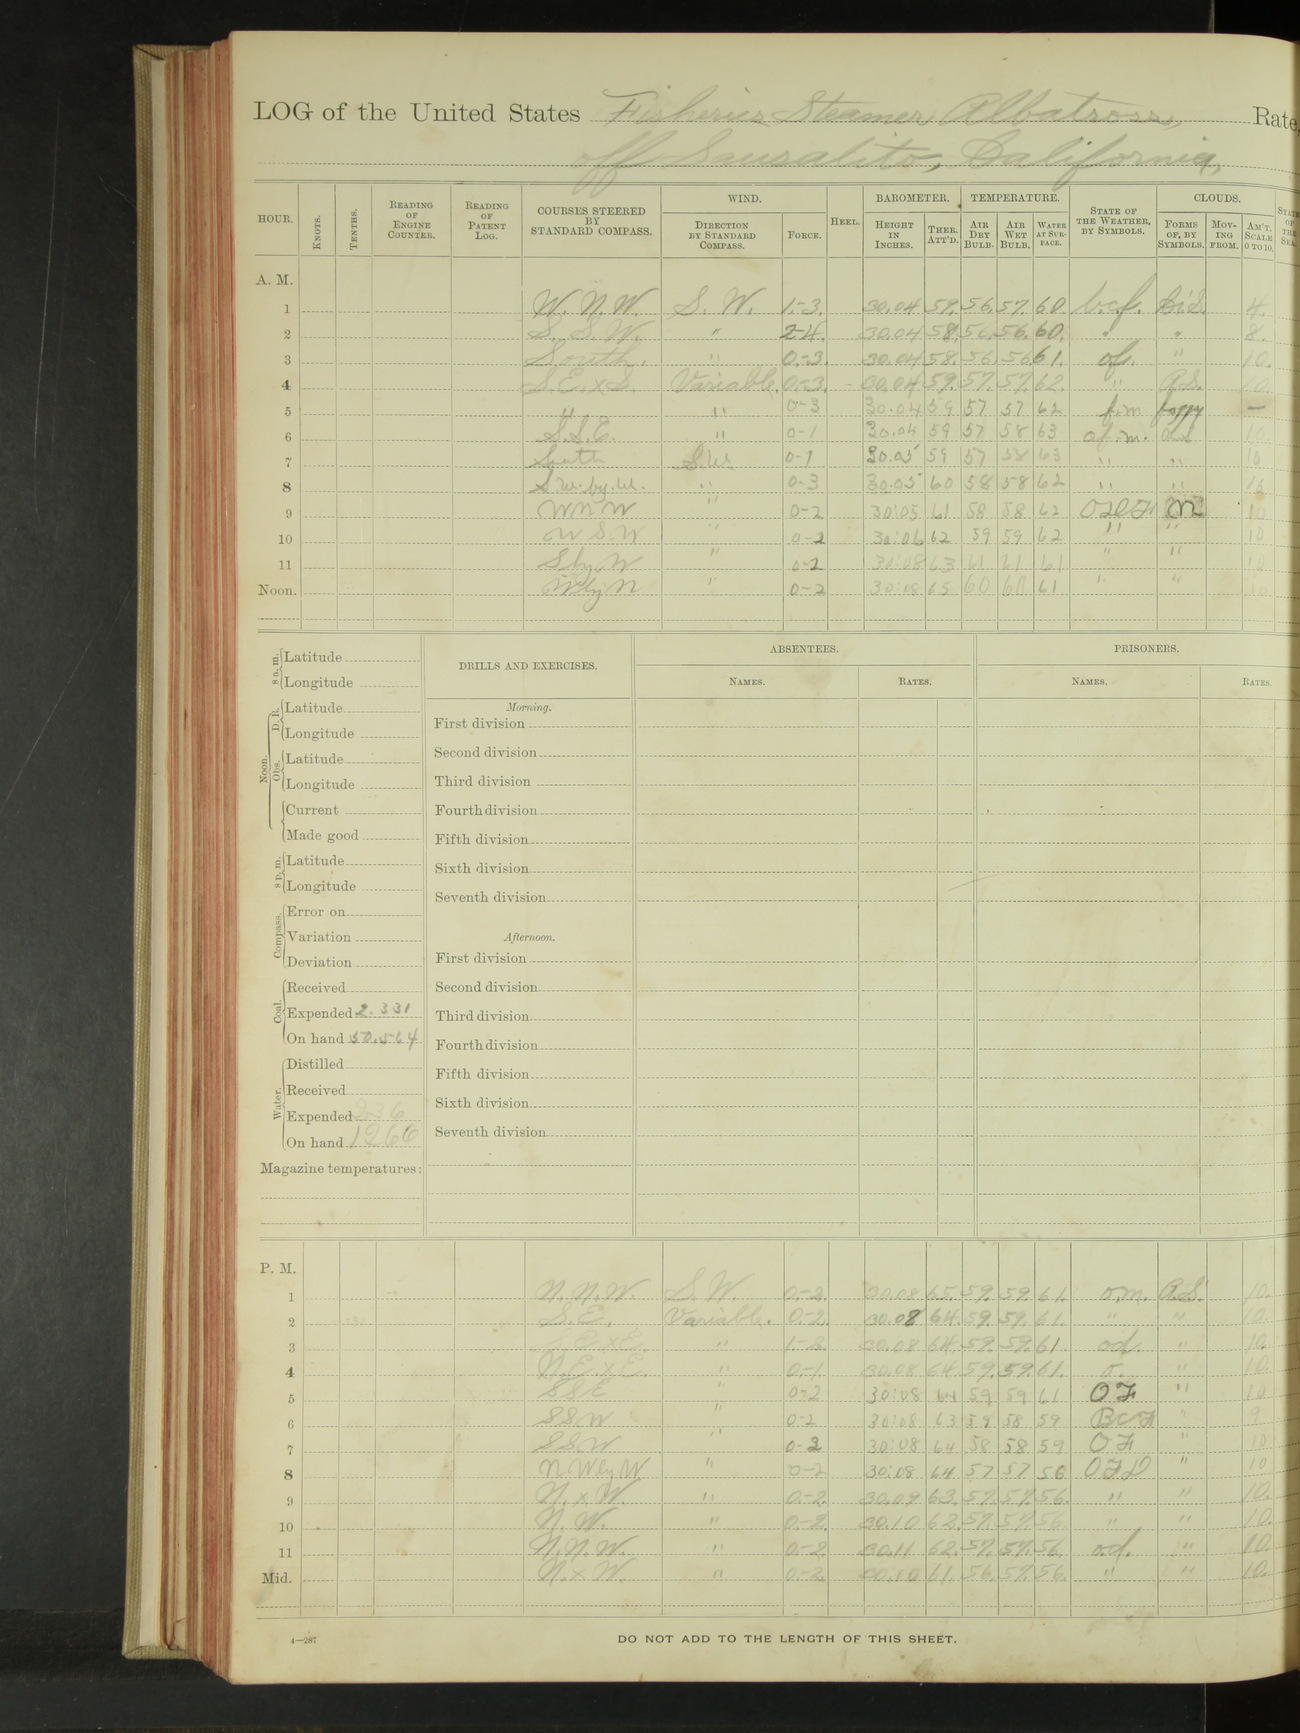 LOG of the United States Fisheries Steamer Albatross, Rate,
off Sausalito, California,
HOUR. KNOTS. TENTHS. READING OF ENGINE COUNTER. READING OF PATENT LOG. COURSES STEERED BY STANDARD COMPASS. WIND. DIRECTION BY STANDARD COMPASS. FORCE. HEEL. BAROMETER. HEIGHT IN INCHES. THER. ATT'D. TEMPERATURE. AIR DRY BULB. AIR WET BULB. WATER AT SURFACE. STATE OF THE WEATHER, BY SYMBOLS. CLOUDS. FORMS OF, BY SYMBOLS. MOVING FROM. AM'T. SCALE 0 TO 10. STATE OF THE SEA
A. M.
1 W. N. W. S. W. 1-3 30.04 59. 56. 57. 60. b.c.f. Ci.S. 4.
2 S. S. W. " 2-4. 30.04 58. 56. 56. 60. " " 8.
3 South. " 0-3. 30.04 58. 56. 56 61. of. " 10.
4 S.E.xS. Variable. 0-3. 30.04 59. 57. 57. 62. " A.S. 10.
5 " " 0-3 30.04 59 57 57 62 f.m foggy —
6 S.S.E. " 0-1 30.04 59 57 58 63 of.m. 10.
7 South S.W 0-1 30.05 59 57 58 63 " " 10
8 S.W. by. W. " 0-3 30.05 60 58 58 62 " " 10
9 WNW " 0-2 30:05 61 58 58 62 N 10
10 W S.W " 0-2 30:06 62 59 59 62 " " 10
11 S by W " 0-2 30:08 63 61 61 61 " " 10
Noon. W by N " 0-2 30:08 65 60 60 61 " " 10
8 a. m. Latitude
Longitude
Noon. D. R. Latitude
Longitude
Obs. Latitude
Longitude
Current
Made good
8 p. m. Latitude
Longitude
Compass. Error on
Variation
Deviation
Coal. Received
Expended 2.331
On hand 50.564
Water. Distilled
Received
Expended 236
On hand 1266
Magazine temperatures:
DRILLS AND EXERCISES.
Morning.
First division
Second division
Third division
Fourth division
Fifth division
Sixth division
Seventh division
Afternoon.
First division
Second division
Third division
Fourth division
Fifth division
Sixth division
Seventh division
ABSENTEES.
NAMES. RATES.
PRISONERS.
NAMES. RATES.
P. M.
1 N. N. W. S. W. 0-2. 30.08 65. 59. 59. 61. o.m. A.S. 10.
2 S.E. Variable. 0-2. 30.08 64. 59. 59. 61. " " 10.
3 S.E.xE. " 1-2. 30.08 64. 59. 59. 61. od. " 10.
4 N.E.xE. " 0-1. 30.08 64. 59. 59. 61. o. " 10.
5 SSE " 0-2 30:08 64 59 59 61 OF " 10
6 SSW " 0-2 30:08 63 59 58 59 BCF " 9
7 SSW " 0-2 30:08 64 58 58 59 OF " 10
8 N W by W " 0-2 30:08 64 57 57 56 OFD " 10
9 N. x W. " 0-2. 30.09 63. 57. 57. 56. " " 10.
10 N. W. " 0-2. 30.10 62. 57. 57. 56 " " 10.
11 N. N. W. " 0-2 30.11 62. 57. 57. 56. o.d. " 10.
Mid. N. x W. " 0-2 30.10 61. 56. 57. 56. " " 10.
4—287
DO NOT ADD TO THE LENGTH OF THIS SHEET.